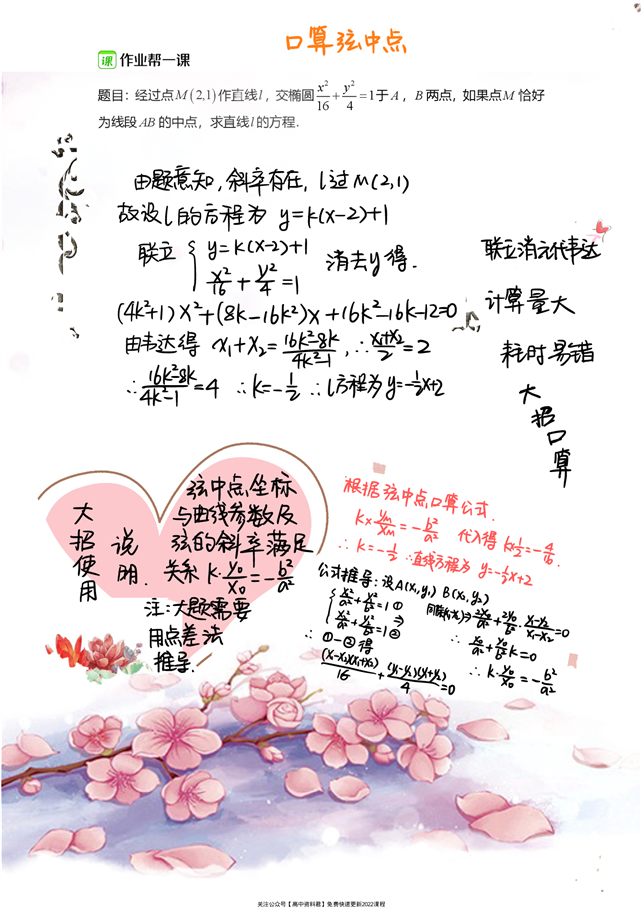 口算弦中点
课 作业帮一课
题目：经过点M(2,1)作直线l，交椭圆x²/16+y²/4=1于A，B两点，如果点M恰好
为线段AB的中点，求直线l的方程.
由题意知，斜率存在，l过M(2,1)
故设l的方程为 y=k(x-2)+1
联立 { y=k(x-2)+1
x²/16+y²/4=1
消去y得.
(4k²+1)x²+(8k-16k²)x+16k²-16k-12=0
由韦达得 x₁+x₂=16k²-8k/4k²-1，∴x₁+x₂/2=2
∴16k²-8k/4k²-1=4 ∴k=-1/2 ∴l方程为y=-1/2x+2
联立消元代韦达
计算量大
耗时易错
大招口算
大招使用说明.
弦中点坐标
与曲线参数及
弦的斜率满足
关系 k·y₀/x₀=-b²/a²
注：大题需要
用点差法
推导.
根据弦中点口算公式.
k×yₘ/xₘ=-b²/a² 代入得 k×1/2=-4/16.
∴k=-1/2 ∴直线方程为 y=-1/2x+2
公式推导：设A(x₁,y₁) B(x₂,y₂)
{ x₁²/a²+y₁²/b²=1 ①
x₂²/a²+y₂²/b²=1 ②
⇒
∴ ①-②得
(x₁-x₂)(x₁+x₂)/16+(y₁-y₂)(y₁+y₂)/4=0
⇒2x₀/a²+2y₀/b²·y₁-y₂/x₁-x₂=0
∴ x₀/a²+y₀/b²k=0
∴ k·y₀/x₀=-b²/a²
关注公众号【高中资料君】免费快速更新2022课程